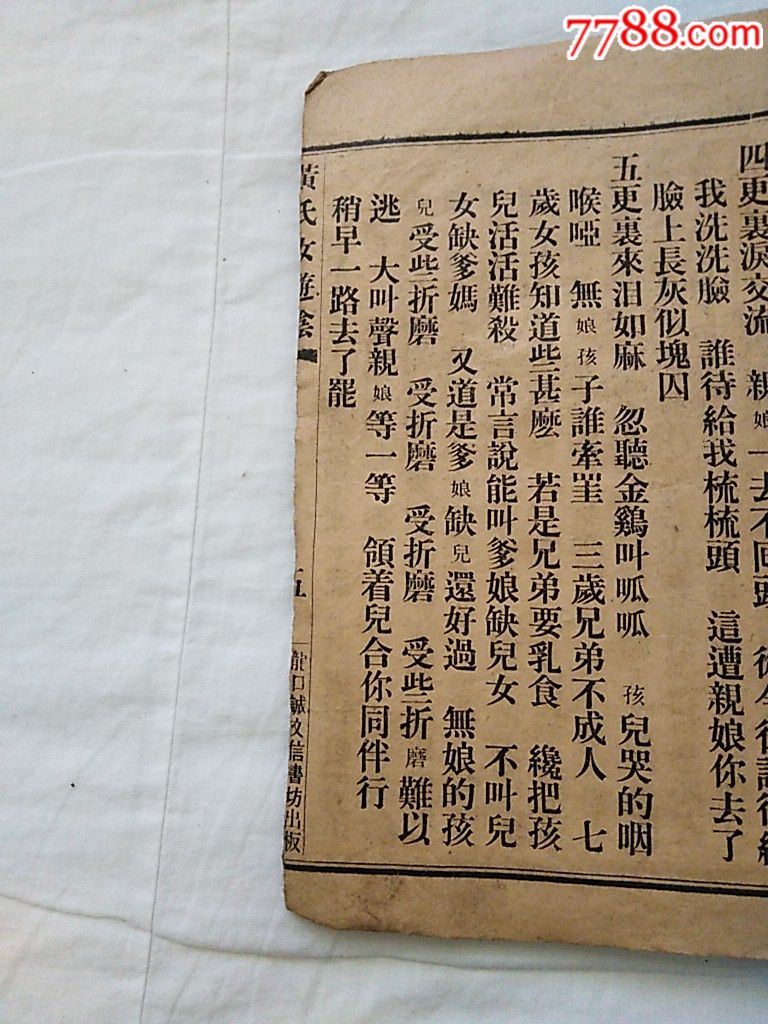 7788.com
四更裏淚交流 親娘一去不回頭 從今後誰待給
我洗洗臉 誰待給我梳梳頭 這遭親娘你去了
臉上長灰似塊囚
五更裏來泪如麻 忽聽金鷄叫呱呱 孩兒哭的咽
喉啞 無娘孩子誰牽罣 三歲兄弟不成人 七
歲女孩知道些甚麽 若是兄弟要乳食 纔把孩
兒活活難殺 常言說能叫爹娘缺兒女 不叫兒
女缺爹媽 又道是爹娘缺兒還好過 無娘的孩
兒受些折磨 受折磨 受折磨 受些折磨難以
逃 大叫聲親娘等一等 領着兒合你同伴行
稍早一路去了罷
黃氏女遊陰
五
龍口誠文信書坊出版